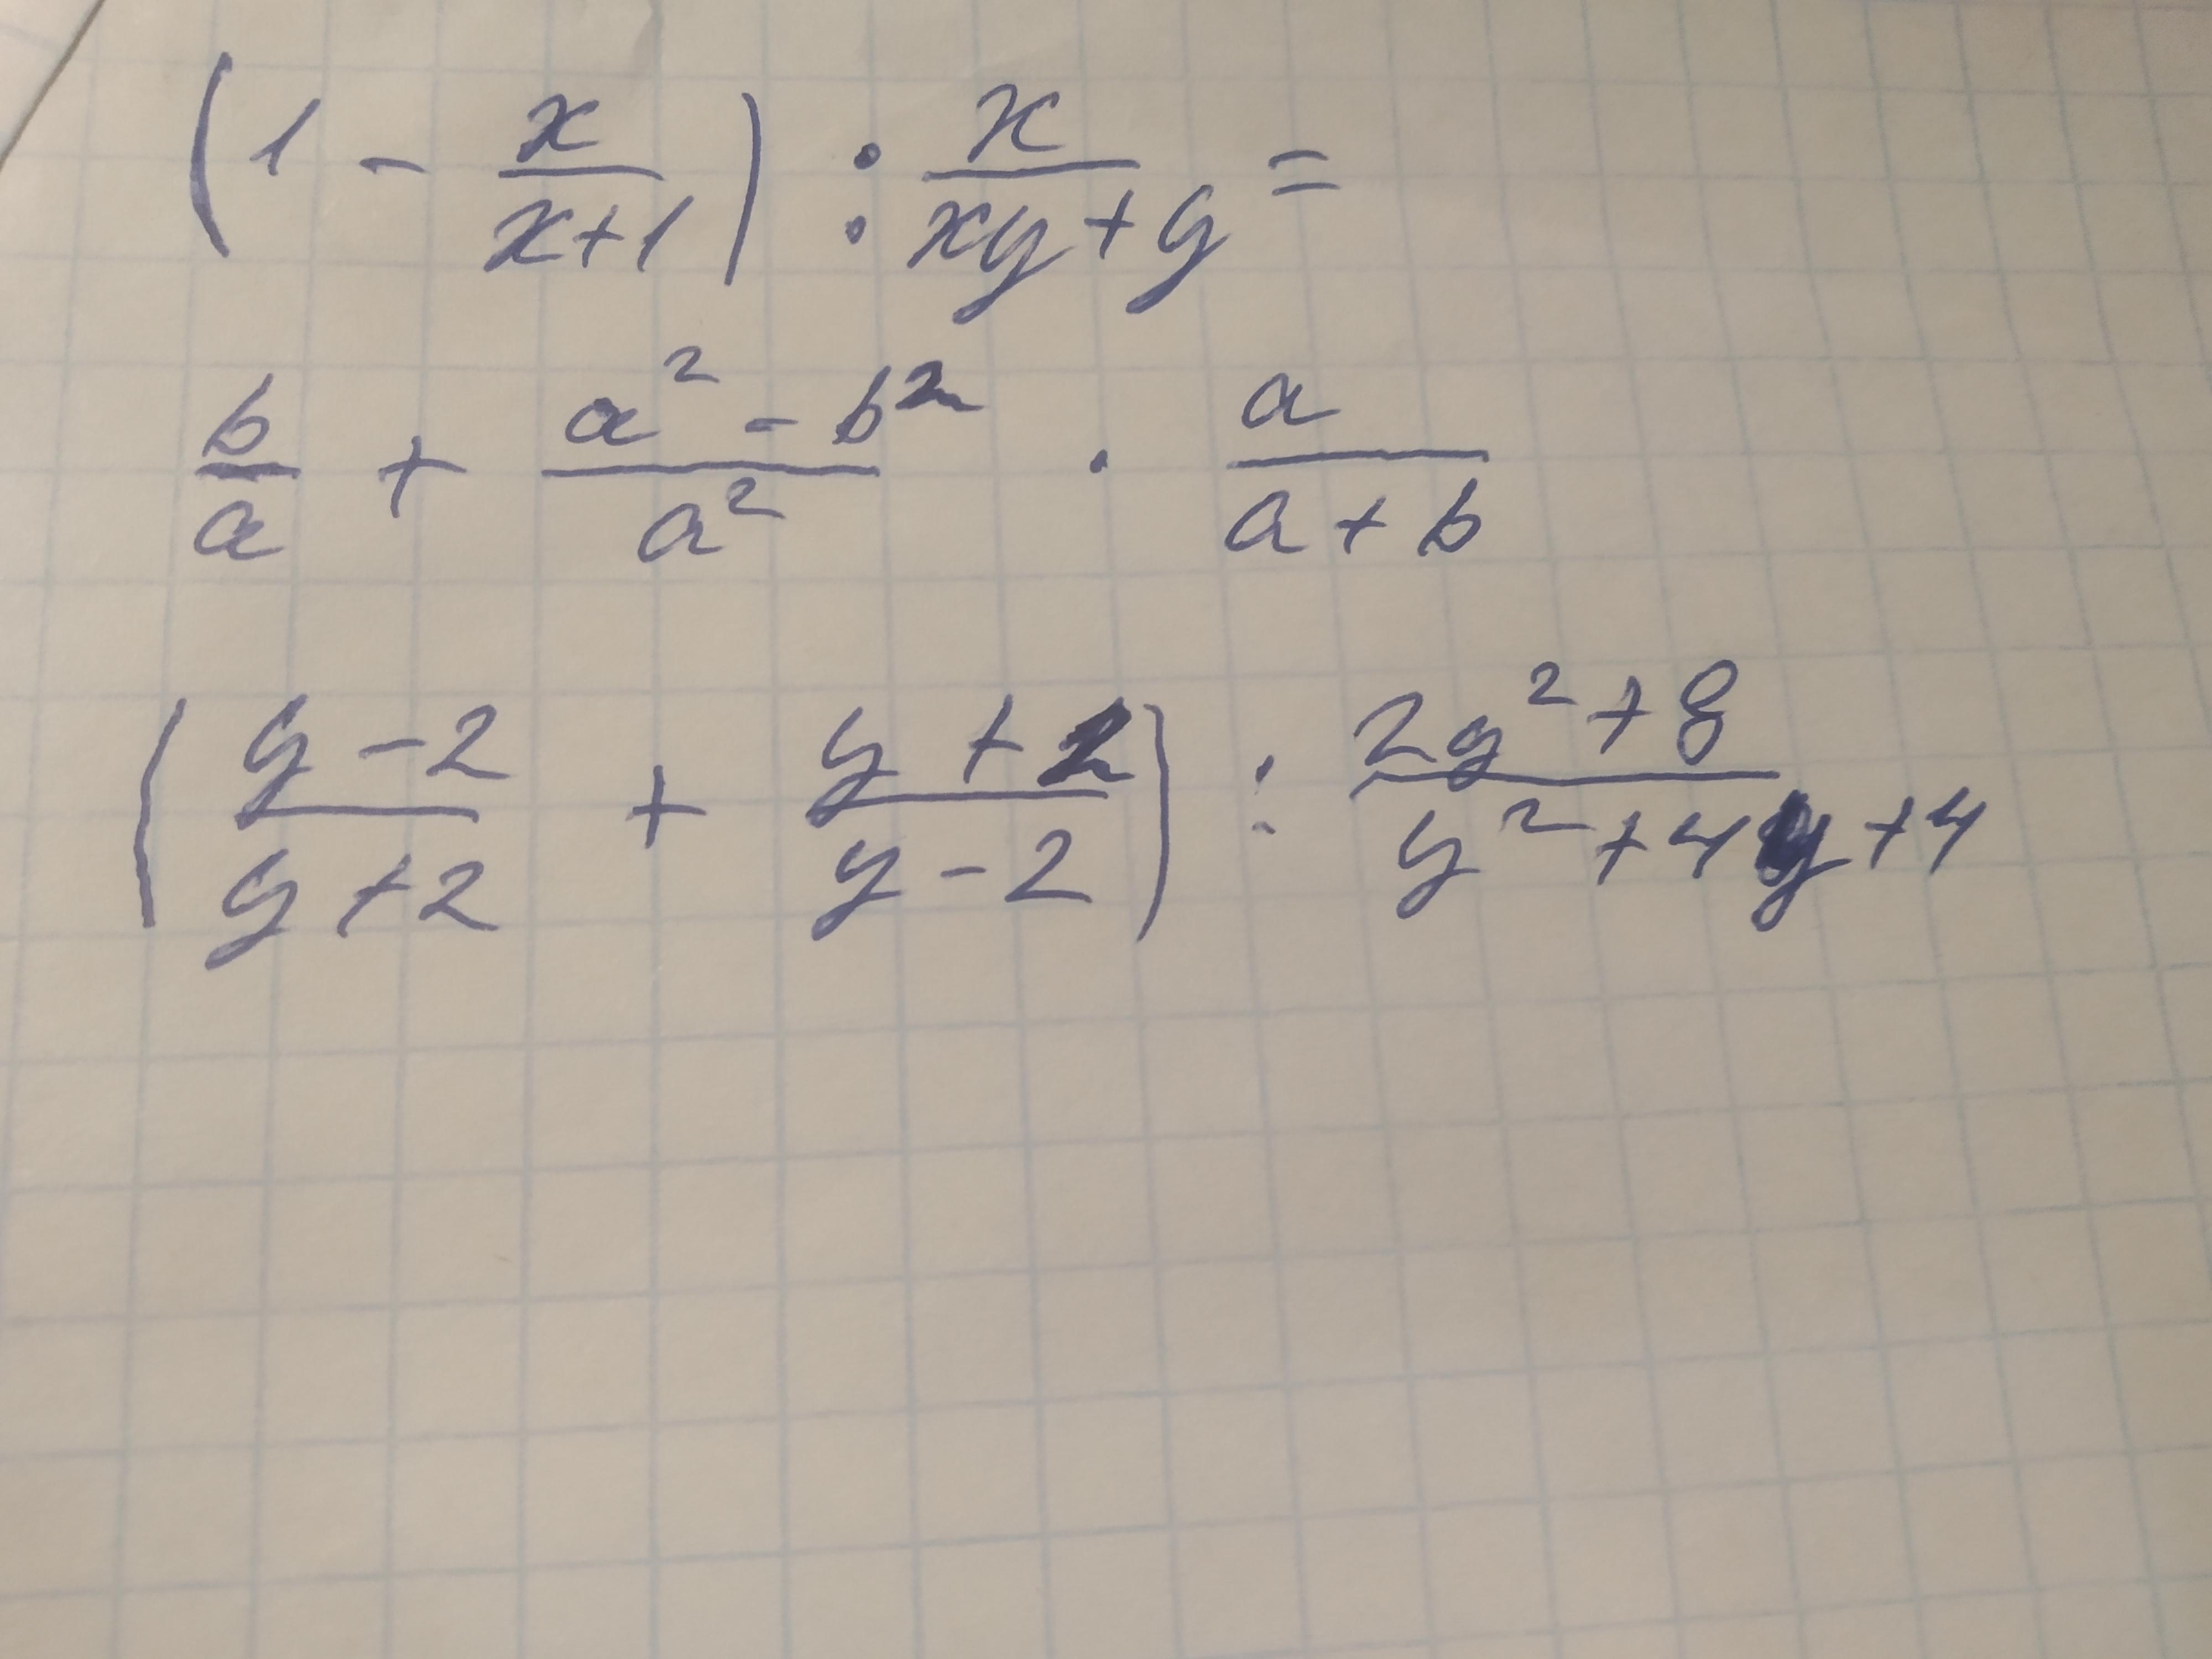 (1 - x/(x+1)) : x/(xy+y) =
b/a + (a² - b²)/a² · a/(a+b)
((y-2)/(y+2) + (y+2)/(y-2)) : (2y²+8)/(y²+4y+4)